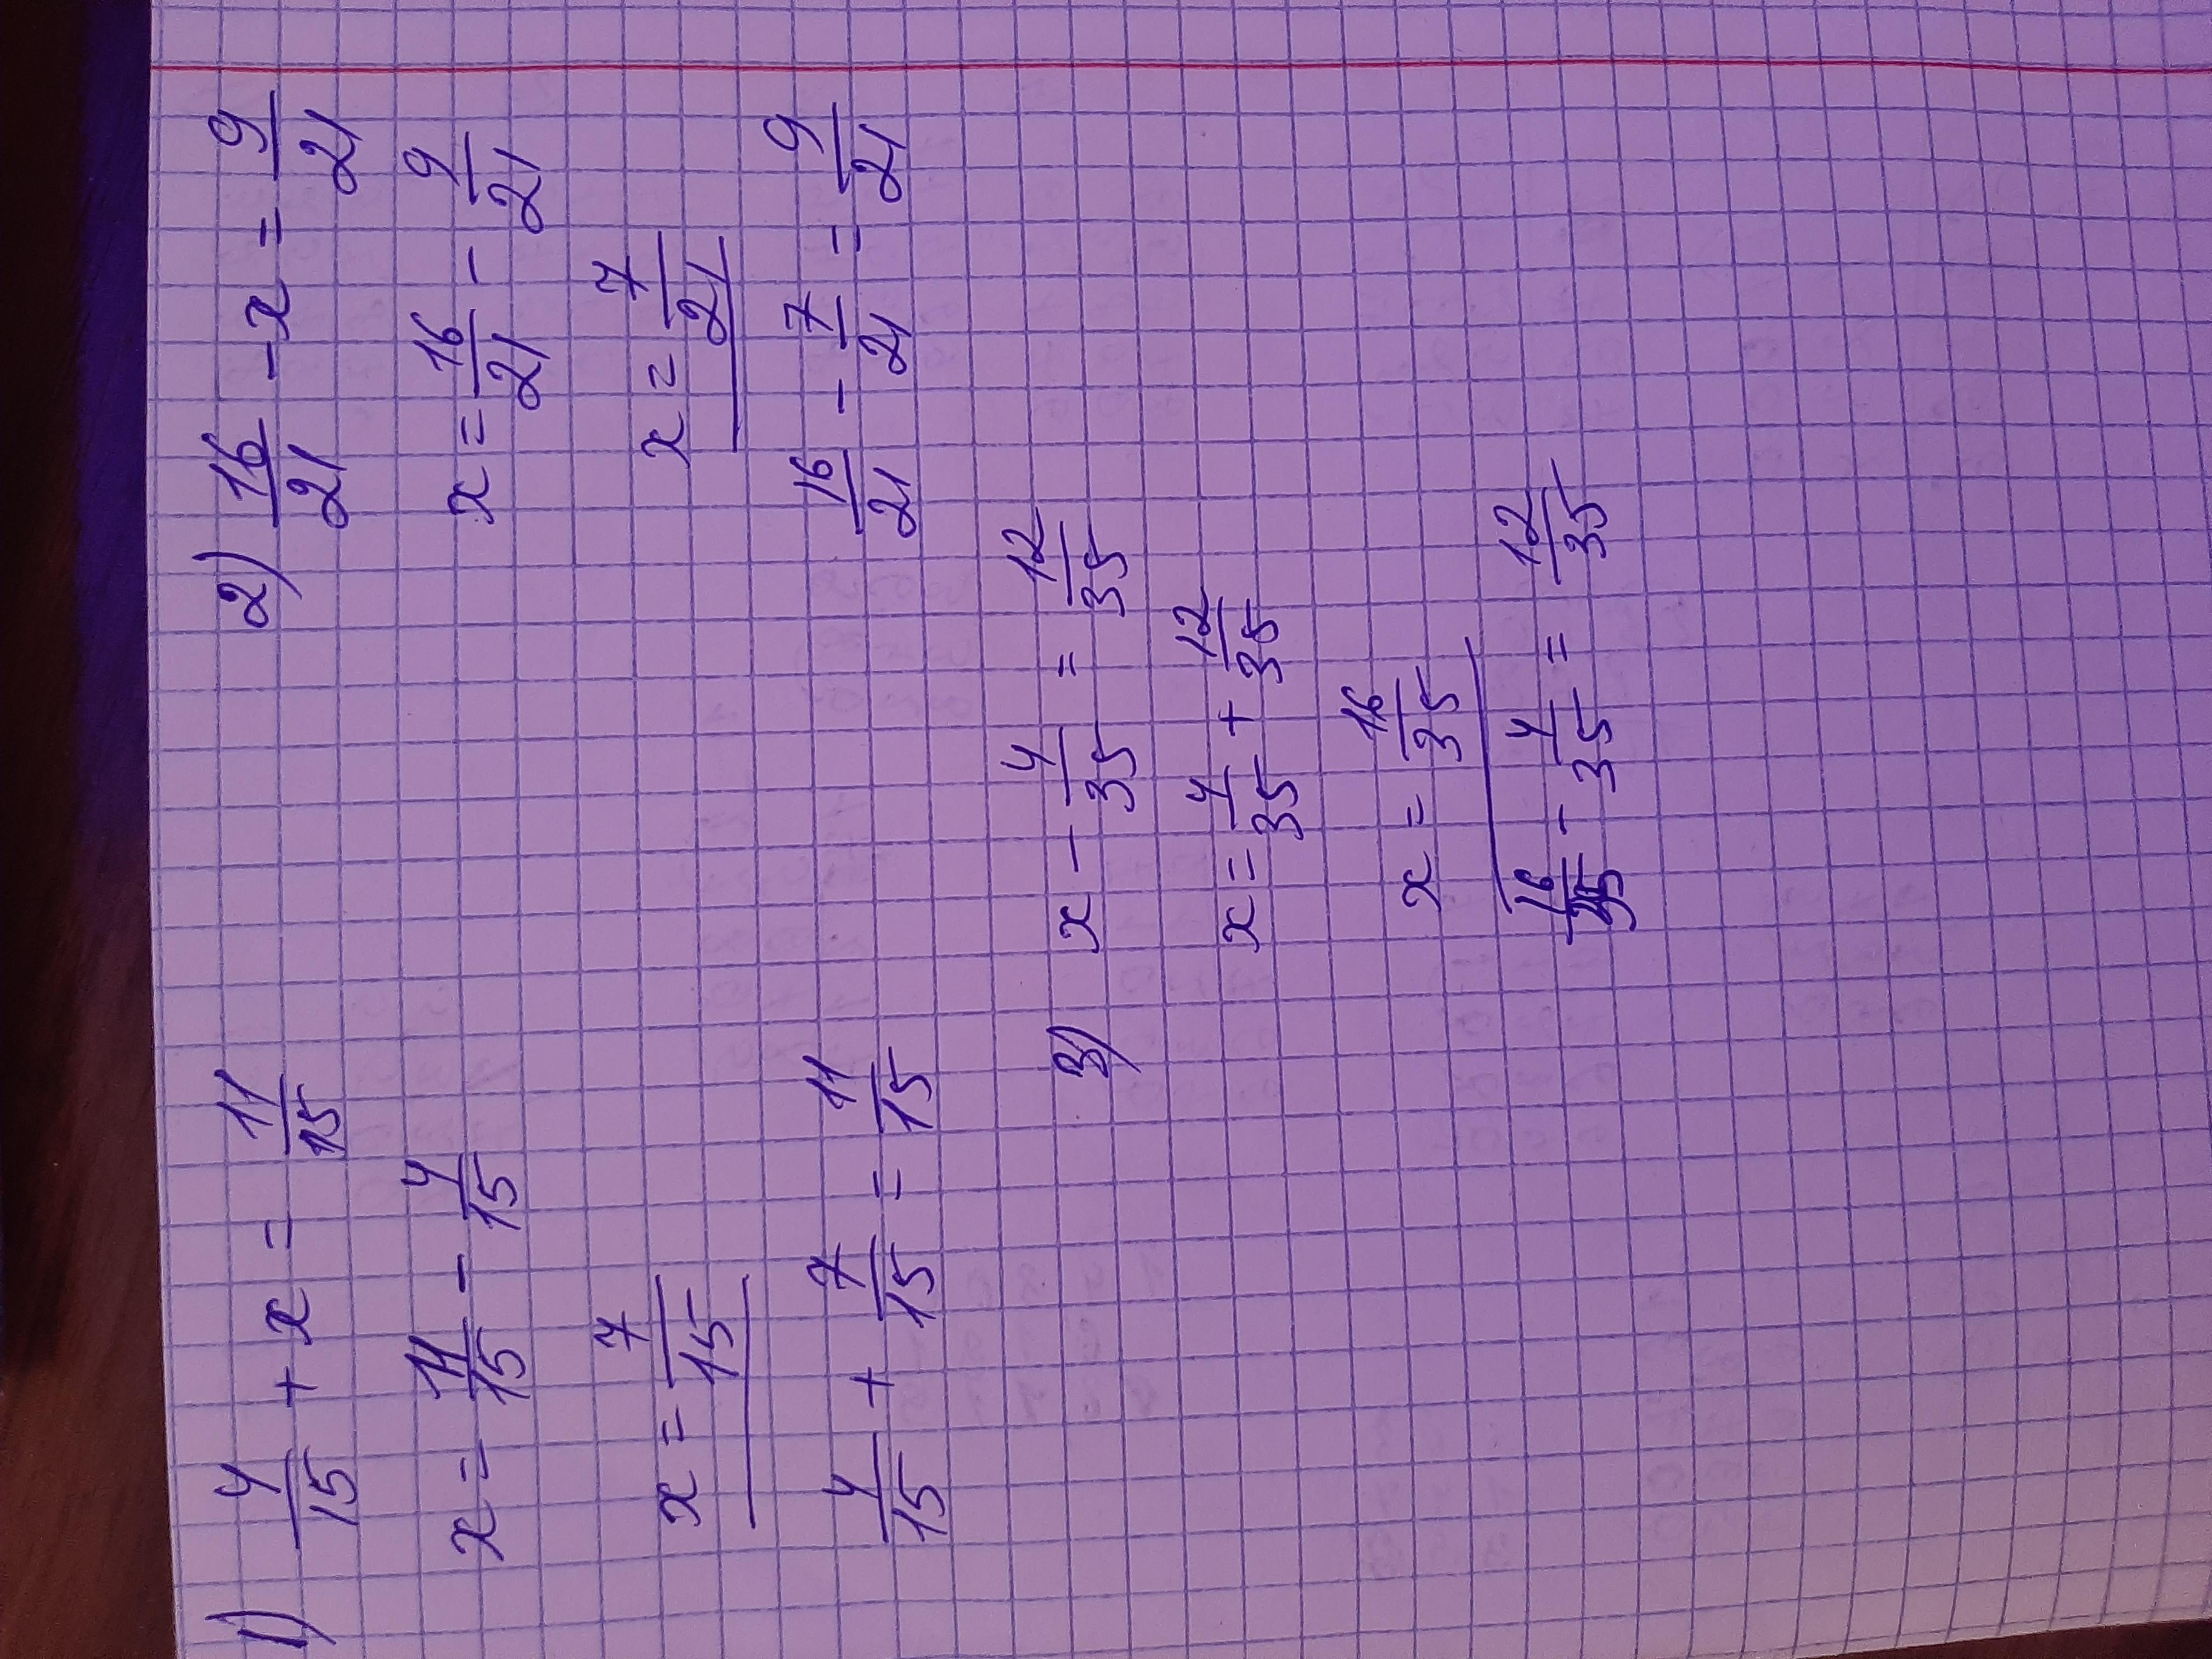 1) 4/15 + x = 11/15
x = 11/15 - 4/15
x = 7/15
4/15 + 7/15 = 11/15
2) 16/21 - x = 9/21
x = 16/21 - 9/21
x = 7/21
16/21 - 7/21 = 9/21
3) x - 4/35 = 12/35
x = 4/35 + 12/35
x = 16/35
16/35 - 4/35 = 12/35